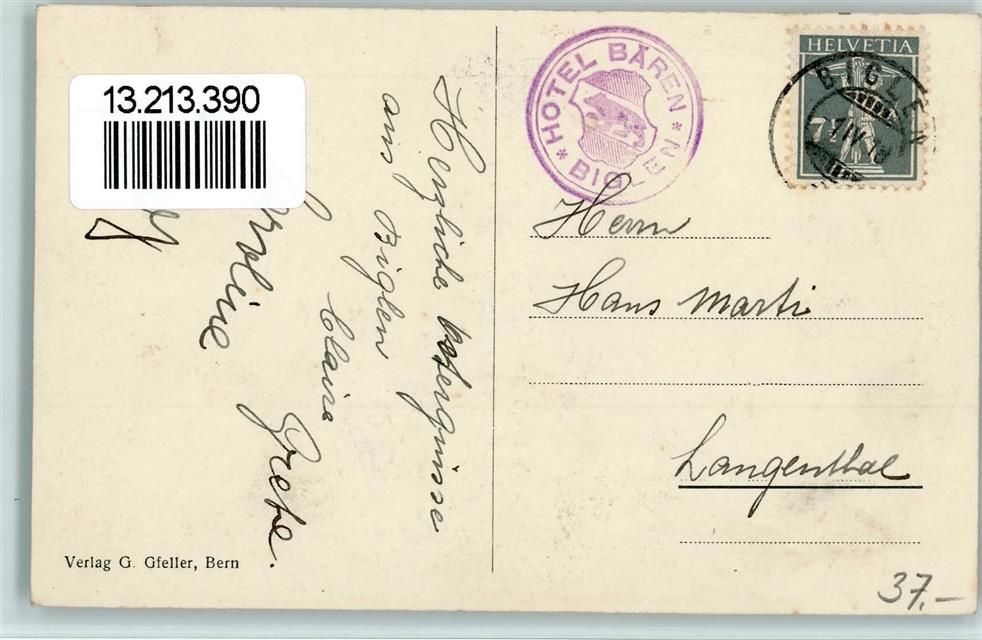 13.213.390
Herzliche Ostergrüsse
aus Biglen
Claire
Grete.
Verlag G. Gfeller, Bern
HOTEL BÄREN
BIGLEN
HELVETIA
7½
BIGLEN
Herrn
Hans Marti
Langenthal
37.–